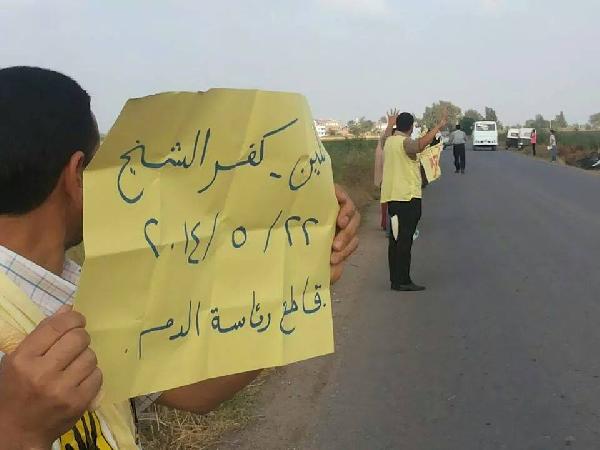 بلين - كفر الشيخ
٢٢ / ٥ / ٢٠١٤
قاطع رئاسة الدم